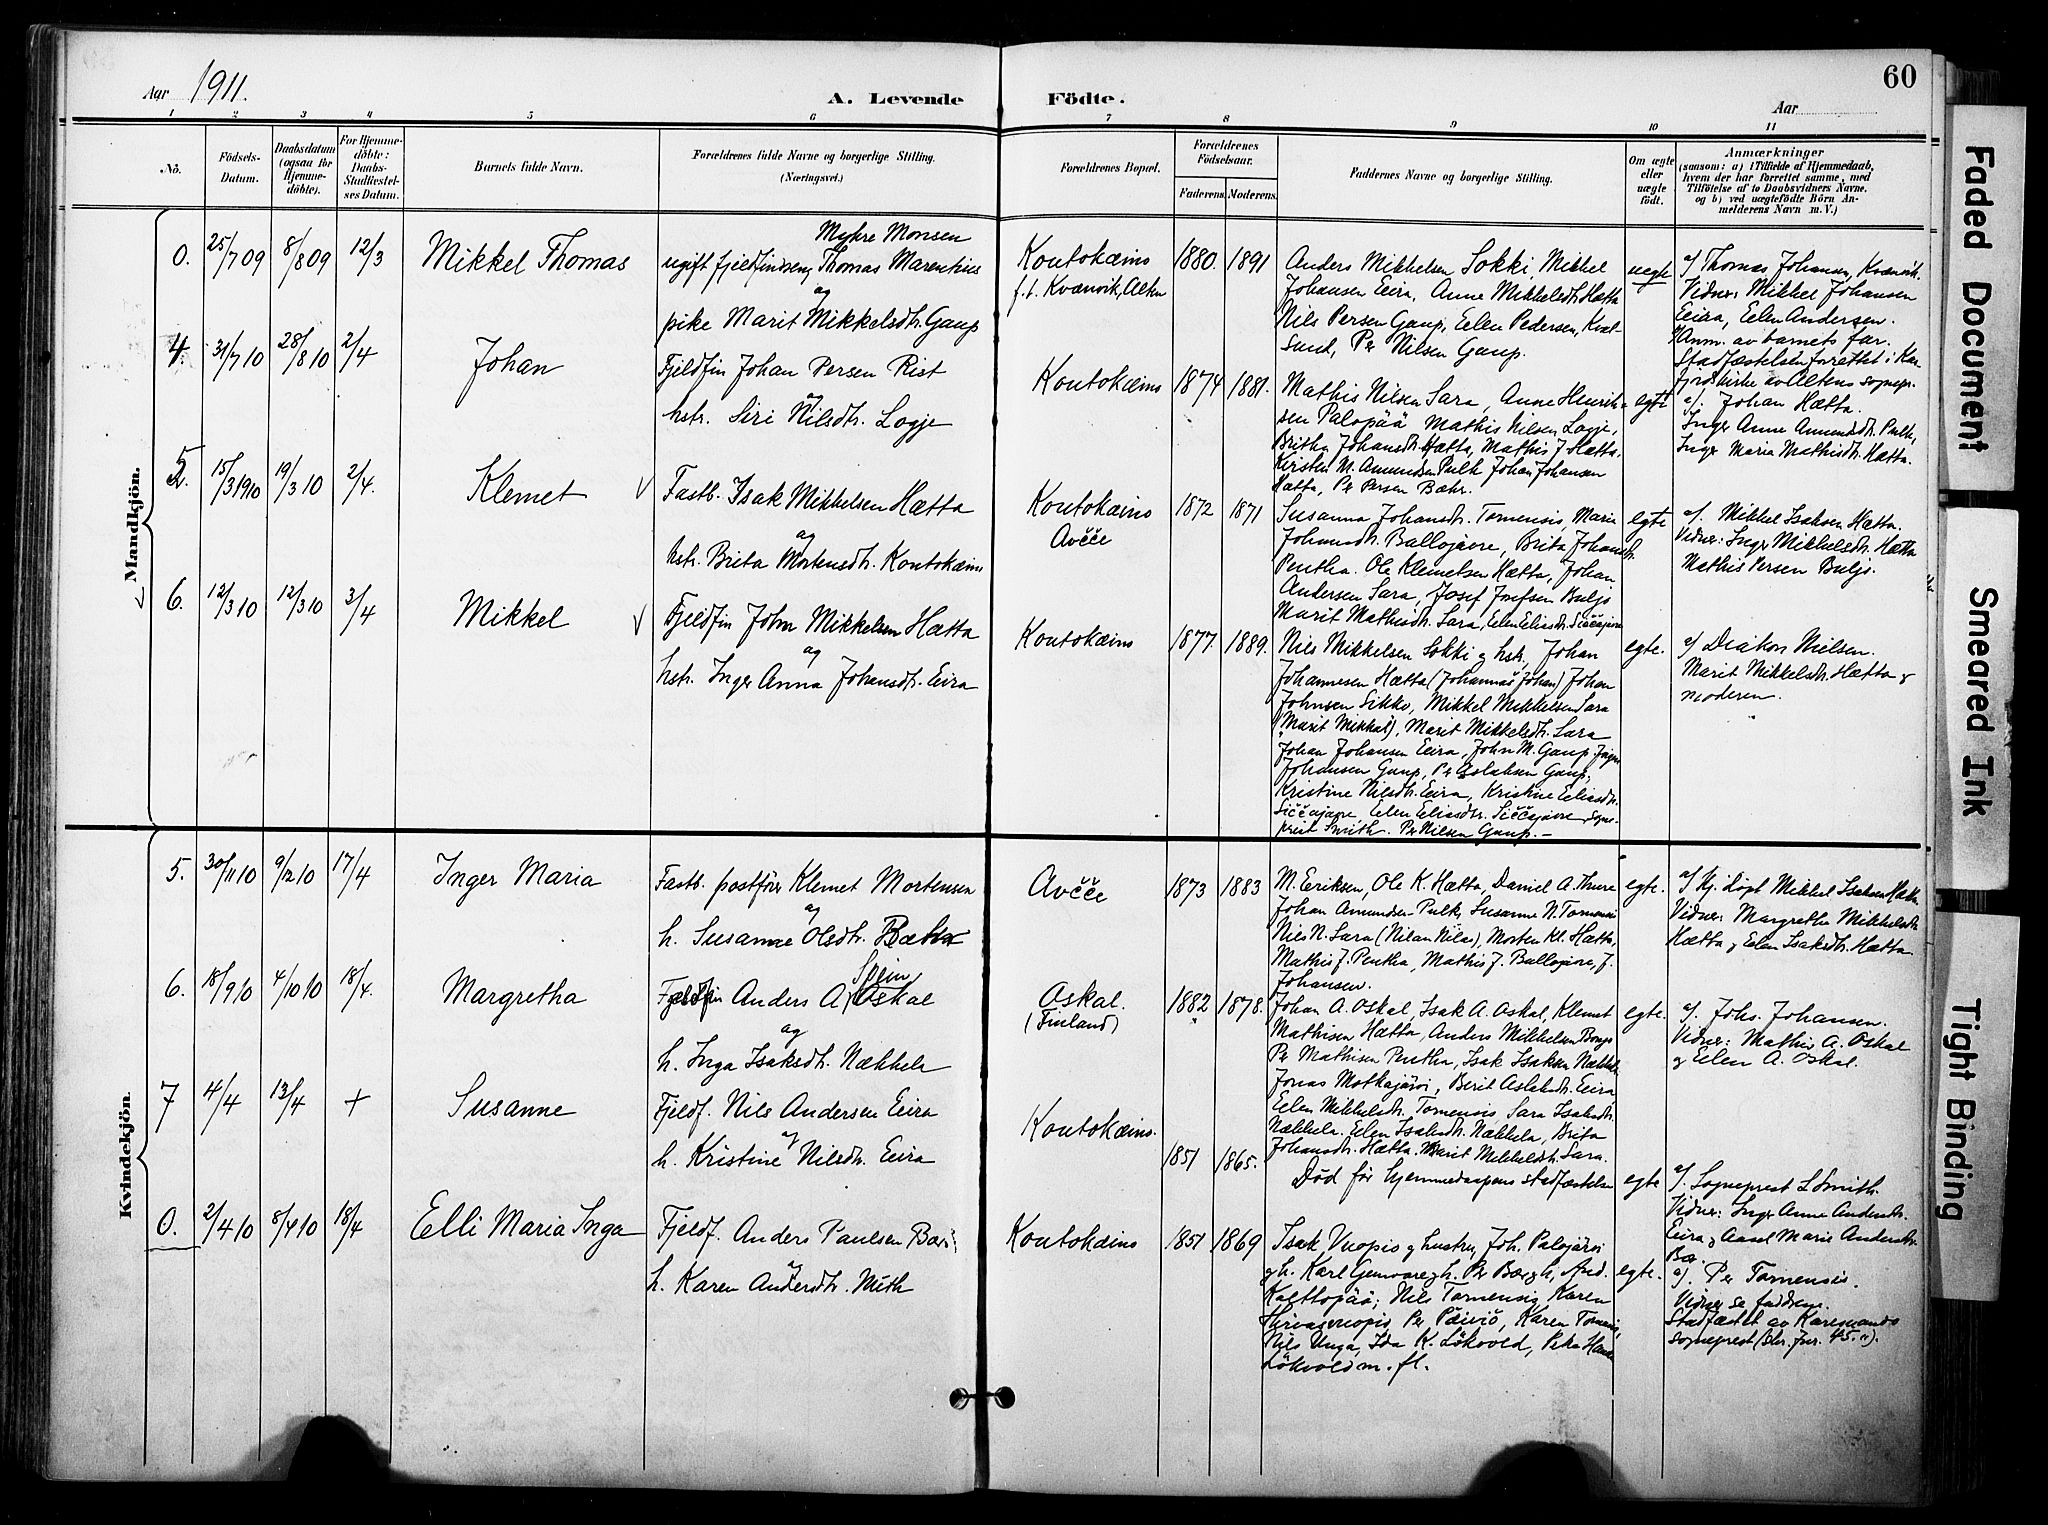 Aar 1911.
A. Levende
Födte.
Aar
60
1 2 3 4 5 6 7 8 9 10 11
No.
Födsels-
Datum.
Daabsdatum
(ogsaa for
Hjemme-
döbte).
For Hjemme-
döbte:
Daabs-
Stadfæstel-
ses Datum.
Barnets fulde Navn.
Forældrenes fulde Navne og borgerlige Stilling.
(Næringsvei.)
Forældrenes Bopæl.
Forældrenes
Födselsaar.
Faderens. Moderens.
Faddernes Navne og borgerlige Stilling.
Om ægte
eller
uægte
födt.
Anmærkninger
(saasom: a) i Tilfælde af Hjemmedaab,
hvem der har forrettet samme, med
Tilföielse af to Daabsvidners Navne,
og b) ved uægtefödte Börn An-
melderens Navn m. V.)
Mandkjön.
0. 25/7 09 8/8 09 12/3 Mikkel Thomas
Myhre Monsen
ugift fjeldfindseng Thomas Marentius
og
pike Marit Mikkelsdtr. Gaup
Koutokæino
f.t. Kvænvik, Alten
1880. 1891
Anders Mikkelsen Sokki, Mikkel
Johansen Eira, Anne Mikkelsdtr. Hætta
Nils Persen Gaup, Eelen Pedersen, Kval-
sund, Per Nilsen Gaup.
uegte
a/ Thomas Johansen, Kvænvik.
Vidner: Mikkel Johansen
Eira, Eelen Andersen.
Anm. av barnets far.
Stadfæstelsen forrettet i Kaa
fjordskirke av Altens sognepr.
4. 31/7 10 28/8 10 2/4 Johan
Fjeldfin Johan Persen Rist
og
hstr. Siri Nilsdtr. Logje
Koutokæino
1874 1881.
Mathis Nilsen Sara, Anne Henrik-
sen Palopää Mathis Nilsen Logje,
Britha Johansdtr. Hætta, Mathis J. Hætta.
Kirsten M. Amundsen Pulk Johan Johansen
Hætta, Per Persen Bæhr.
egte
a/. Johan Hætta.
Inger Anne Amundsdtr. Pulk,
Inger Maria Mathisdtr. Hætta.
5. 15/3 1910 19/3 10 2/4. Klemet
Fastb. Isak Mikkelsen Hætta
og
hstr. Brita Mortensdtr. Koutokæino
Koutokæino
Avčče
1872 1871
Susanna Johansdtr. Tornensis, Marie
Johansdtr. Ballojavre, Brita Johansdtr.
Pentha. Ole Klemetsen Hætta, Johan
Andersen Sara, Josef Josefsen Buljo
Marit Mathisdtr. Sara, Eelen Eliasdtr. Siččajavre
egte
a/. Mikkel Isaksen Hætta.
Vidner: Inger Mikkelsdtr. Hætta
Mathis Persen Buljo.
6. 12/3 10 12/3 10 3/4 Mikkel
Fjeldfin John Mikkelsen Hætta
og
hstr. Inger Anna Johansdtr. Eira
Koutokæino
1877. 1889.
Nils Mikkelsen Sokki og hstr., Johan
Johannesen Hætta (Johannas Johan) Johan
Johnsen Sikko, Mikkel Mikkelsen Sara
(Marit Mikkal), Marit Mikkelsdtr. Sara
Johan Johansen Eira, John M. Gaup,
Johansen Gaup, Per Aslaksen Gaup,
Kristine Nilsdtr. Eira, Kristine Eliasdtr.
Siččajavre, Eelen Eliasdtr. Siččajavre, sogne-
prest Smith. Per Nilsen Gaup. -
egte.
a/ Diakon Nielsen.
Marit Mikkelsdtr. Hætta &
moderen.
Kvindekjön.
5. 30/11 10 9/12 10 17/4 Inger Maria
Fastb. postförer Klemet Mortensen
og
h. Susanne Olsdtr. Hætta
Avčče
1873 1883
M. Eriksen, Ole K. Hætta, Daniel A. Thure
Johan Amundsen Pulk, Susanne N. Tornensis
Nils N. Sara (Nilan Nilas), Morten Kl. Hætta,
Mathis J. Pentha, Mathis J. Ballojavre, J.
Johansen.
egte.
a/ Kj. Löpt Mikkel Isaksen Hætta
Vidner: Margretha Mikkelsdtr.
Hætta og Eelen Isaksdtr. Hætta.
6. 18/9 10 4/10 10 18/4. Margretha
Spein,
Fjeldfin Anders A. Oskal
og
h. Inga Isaksdtr. Nækkela
Oskal.
(Finland)
1882 1878.
Johan A. Oskal, Isak A. Oskal, Klemet
Mathisen Hætta, Anders Mikkelsen Bongo
Per Mathisen Pentha, Isak Isaksen Nækkela
Jonas Motkajärvi, Berit Aslaksdtr. Eira,
Eelen Mikkelsdtr. Tornensis, Sara Isaksdtr.
Nækkela. Eelen Isaksdtr. Nækkela, Brita
Johansdtr. Hætta. Marit Mikkelsdtr. Sara.
egte.
a/. Johs. Johansen.
Vidner: Mathis A. Oskal
og Eelen A. Oskal.
7 4/4 13/4 + Susanne
Fjeldf. Nils Andersen Eira
og
h. Kristine Nilsdtr. Eira
Koutokæino.
1851 1865.
Död før hjemmedaapens stadfæstelse
egte
a/. Sogneprest L Smith.
Vidner: Inger Anne Andersdtr.
Eira og Aasel Marie Andersdtr.
Bær.
0. 2/4 10 8/4 10 18/4 Elli Maria Inga
Fjeldf. Anders Paulsen Bær
og
h. Karen Andersdtr. Muth
Koutokæino
1851 1869
Isak Vuopio og hustru, Joh. Palojärvi
og h. Karl Genvare og h. Per Bærgh, And.
Kalttopää; Nils Tornensis, Karen
Hirvasvuopio Per Päiviö, Karen Tornensis,
Nils Unga, Ida K. Lökvold, Peka
Lökvold m. fl.
egte.
a/. Per Tornensis.
Vidner se faddrene.
Stadfæstet av Karesuando
sogneprest (Skr. Jnr. 45. 11).
Faded Document
Smeared Ink
Tight Binding